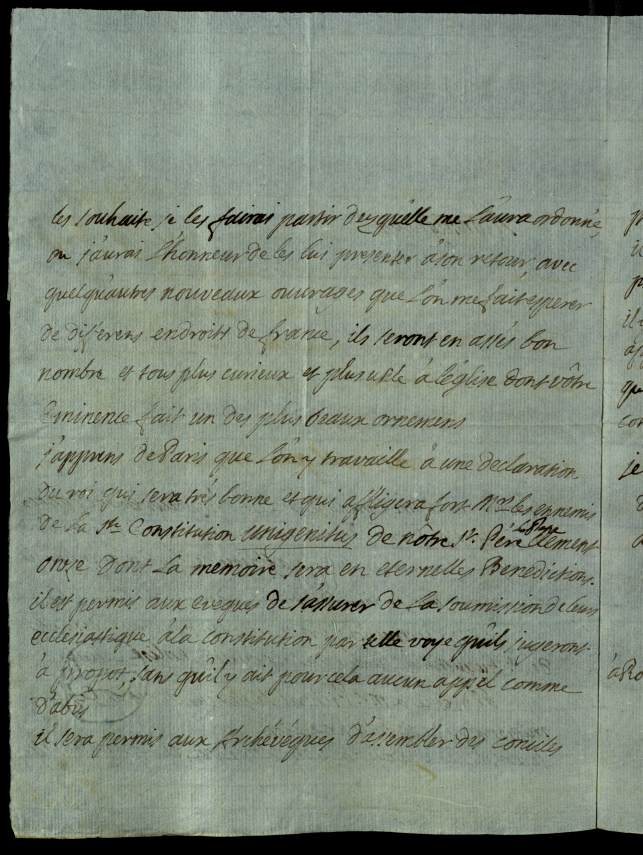 les souhaite, je les fairai partir desqu'elle me l'aura ordonné,
ou j'aurai l'honneur de les lui presenter à son retour, avec
quelqu'autres nouveaux ouvrages que l'on me fait esperer
de différens endroits de france, ils seront en assés bon
nombre et tous plus curieux et plus utile à l'église dont vôtre
Eminence fait un des plus beaux ornemens
j'apprens de Paris que l'on y travaille à une declaration
du roi qui sera trés bonne et qui affligera fort Mrs les ennemis
de la ste Constitution unigenitus de nôtre st. Pére le Pape Clement
onze dont la memoire sera en eternelles Benedictions.
il est permis aux evéques de s'assurer de la soumission de leurs
ecclesiastique à la constitution par telle voye qu'ils jugeront
à propos, sans qu'il y ait pour cela aucun appel comme
d'abus
il sera permis aux Archévéques d'assembler des conciles